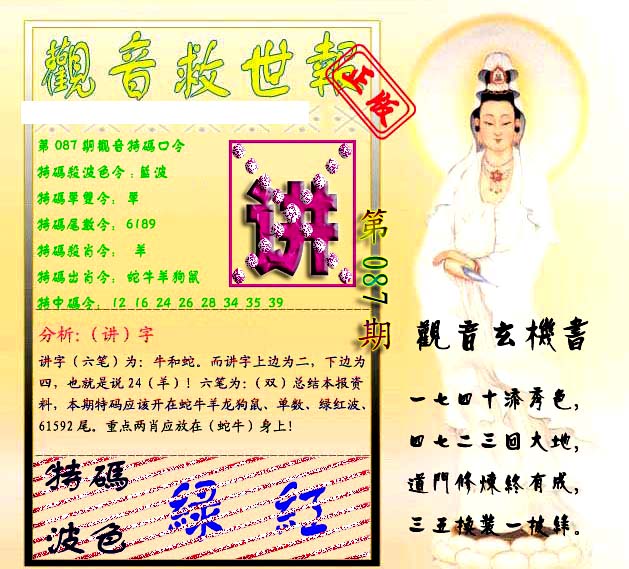 觀音救世報
正版
第087期觀音特碼口令
特碼殺波色令:藍波
特碼單雙令: 單
特碼尾數令: 6189
特碼殺肖令: 羊
特碼出肖令: 蛇牛羊狗鼠
特中碼令: 12 16 24 26 28 34 35 39
讲
第087期
分析:(讲)字
讲字(六笔)为:牛和蛇。而讲字上边为二,下边为
四,也就是说24(羊)!六笔为:(双)总结本报资
料,本期特码应该开在蛇牛羊龙狗鼠、单数、绿红波、
61592尾。重点两肖应放在(蛇牛)身上!
特碼
波色
綠 紅
觀音玄機書
一七四十添秀色,
四七二三回大地,
道門修煉終有成,
三五換裝一披絳。